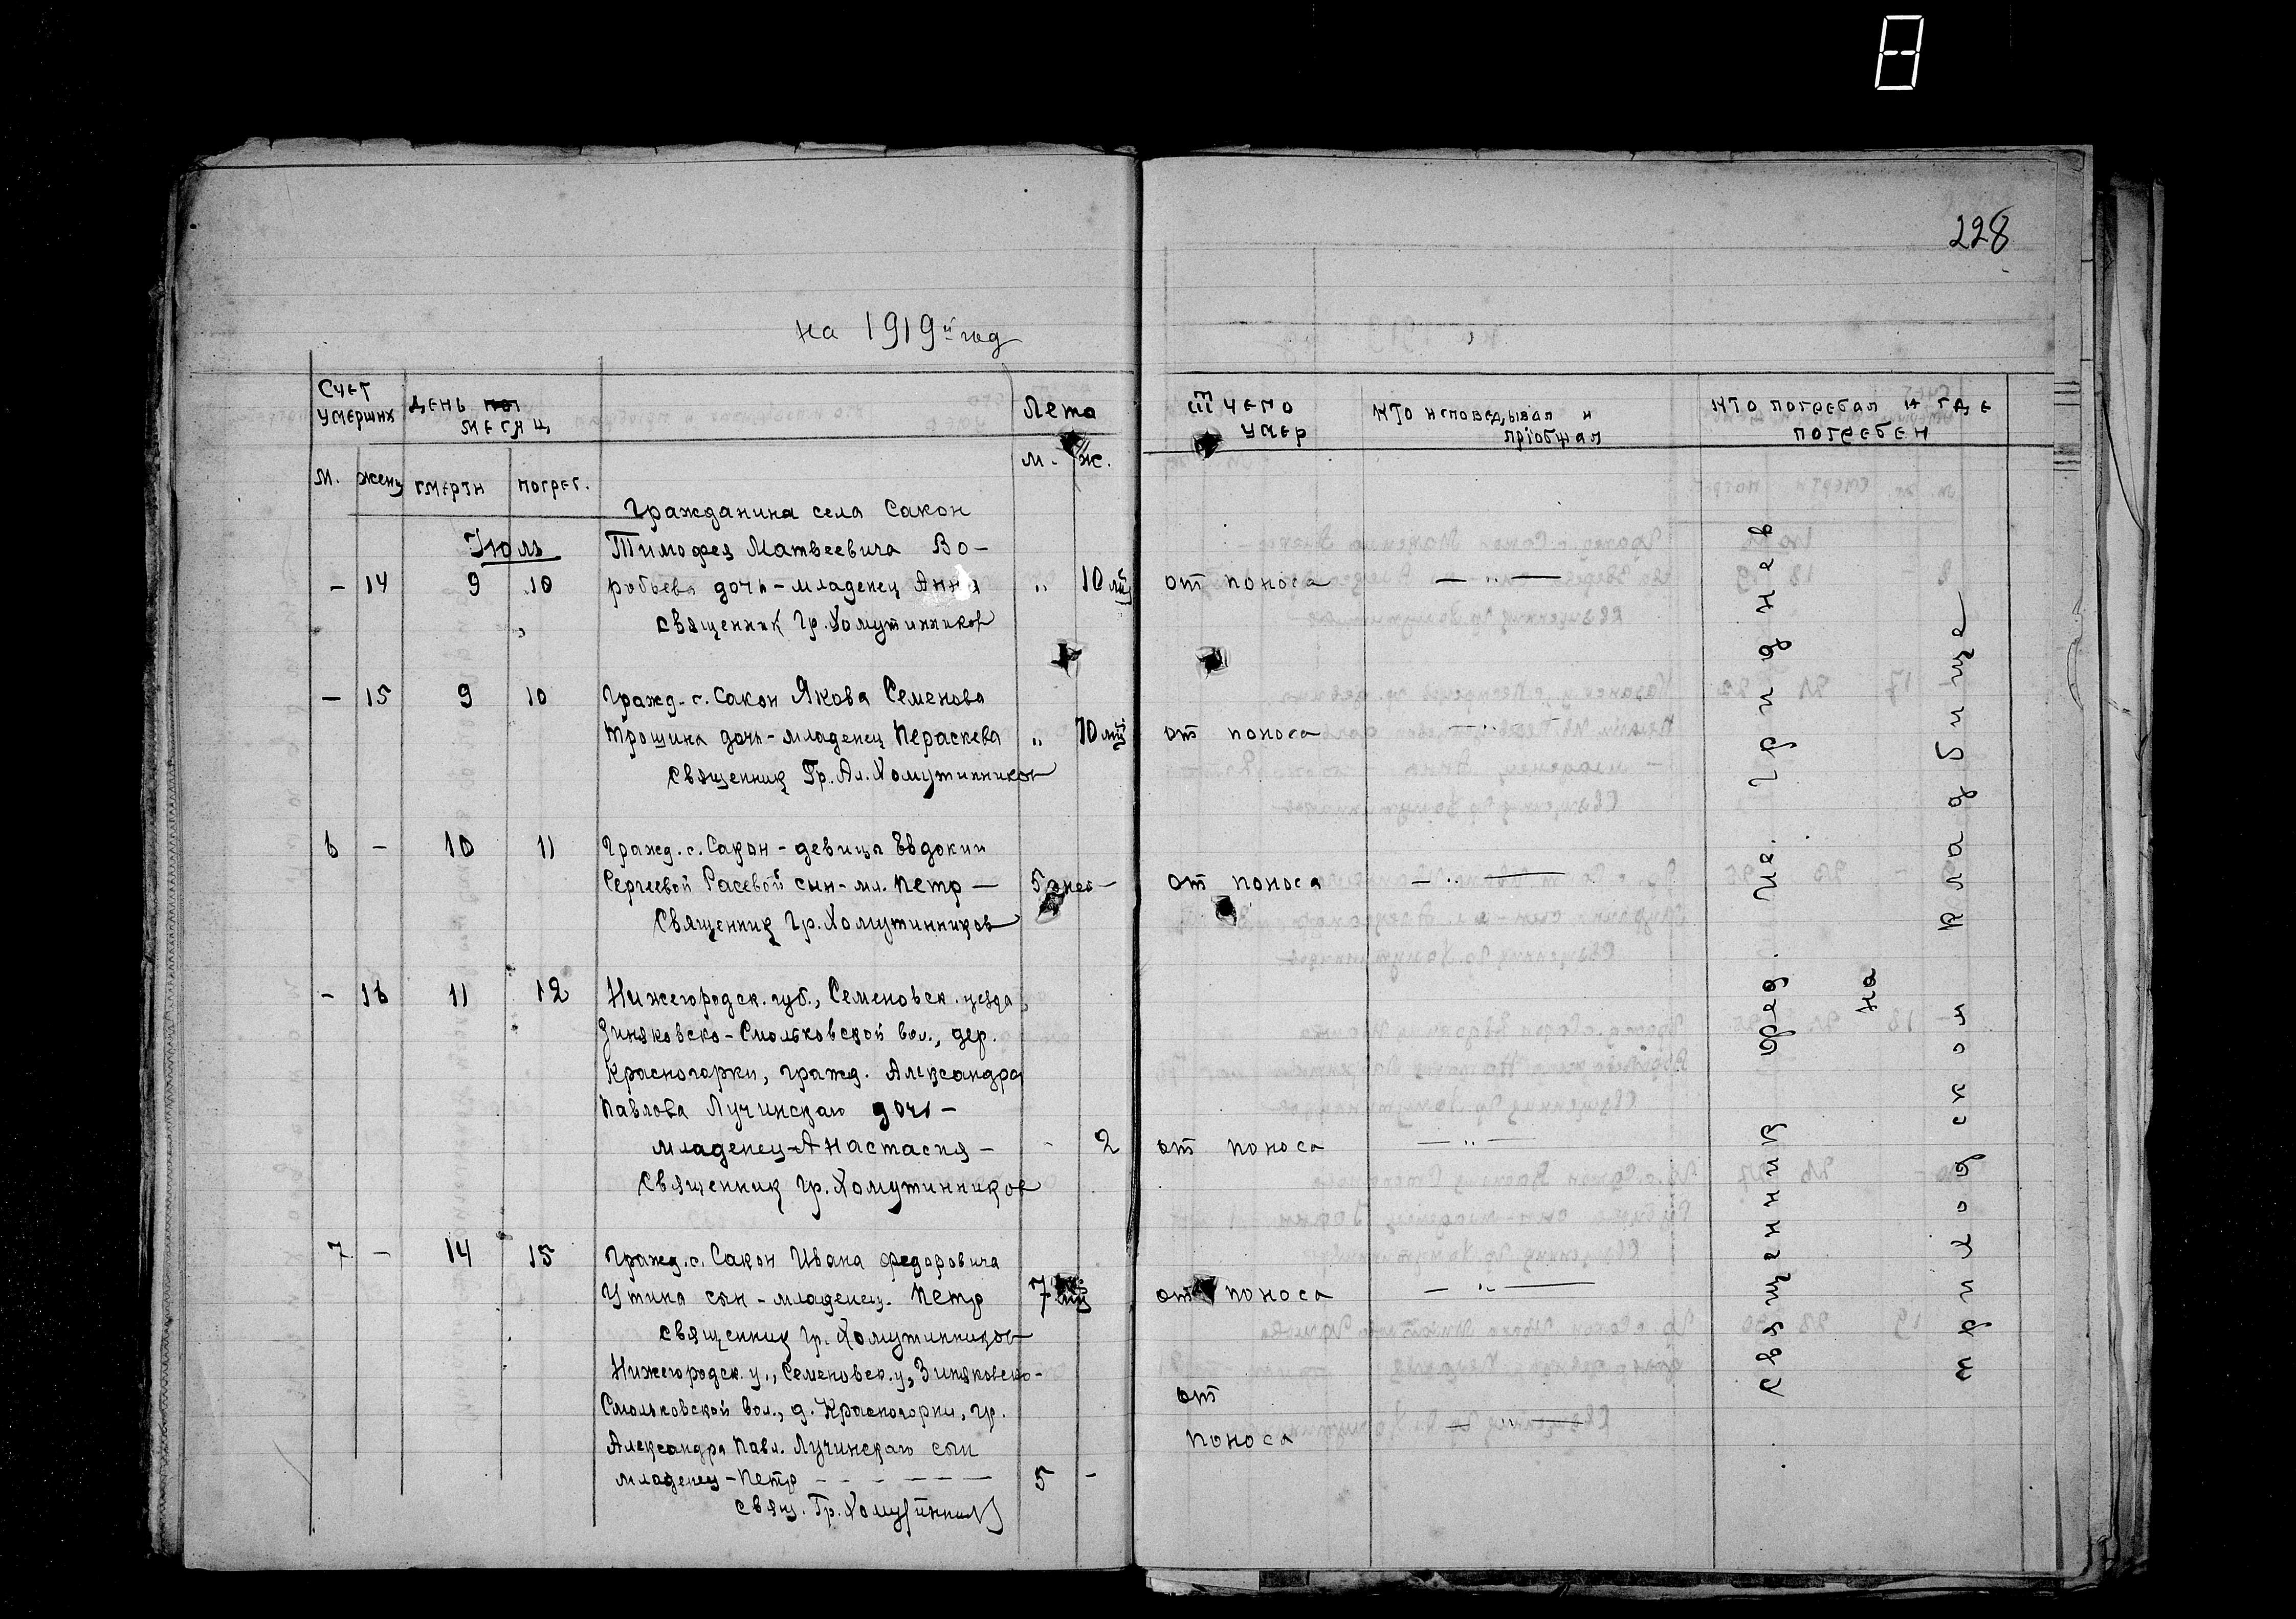 228
на 1919й год
Счет умерших
день месяц
Лета
от чего умер
кто исповедывал и пріобщал
кто погребал и где погребен
м. женс. смерти погреб.
м. ж.
Июль
Гражданина села Сакон
Тимофея Матвеевича Во-
– 14 9 10 робьева дочь – младенец Анна „ 10 мц от поноса — „ —
священник Гр. Хомутинников
– 15 9 10 Гражд. с. Сакон Якова Семенова
Трошина дочь – младенец Пераскева „ 10 мц от поноса — „ —
Священник Гр. Ал. Хомутинников
6 – 10 11 Гражд. с. Сакон – девицы Евдокии
Сергеевой Расевой сын – мл. Петр — 5 дней – от поноса — „ —
Священник Гр. Хомутинников
– 16 11 12 Нижегородск. губ., Семеновск. уезда,
Зиняковско-Смольковской вол., дер.
Красногорки, гражд. Александра
Павлова Лучинскаго дочь –
младенец – Анастасия – - 2 от поноса — „ —
Священник Гр. Хомутинников
7 – 14 15 Гражд. с. Сакон Ивана Федоровича
Утина сын – младенец Петр 7 мц от поноса — „ —
священник Гр. Хомутинников
Нижегородск. у., Семеновск. у., Зиняковско-
Смольковской вол., д. Красногорки, гр.
Александра Павл. Лучинскаго сын
младенец – Петр – – – – – – 5 – от поноса — „ —
свящ. Гр. Хомутинников
Священник Фед. Ив. Гриднев
на
приходском кладбище